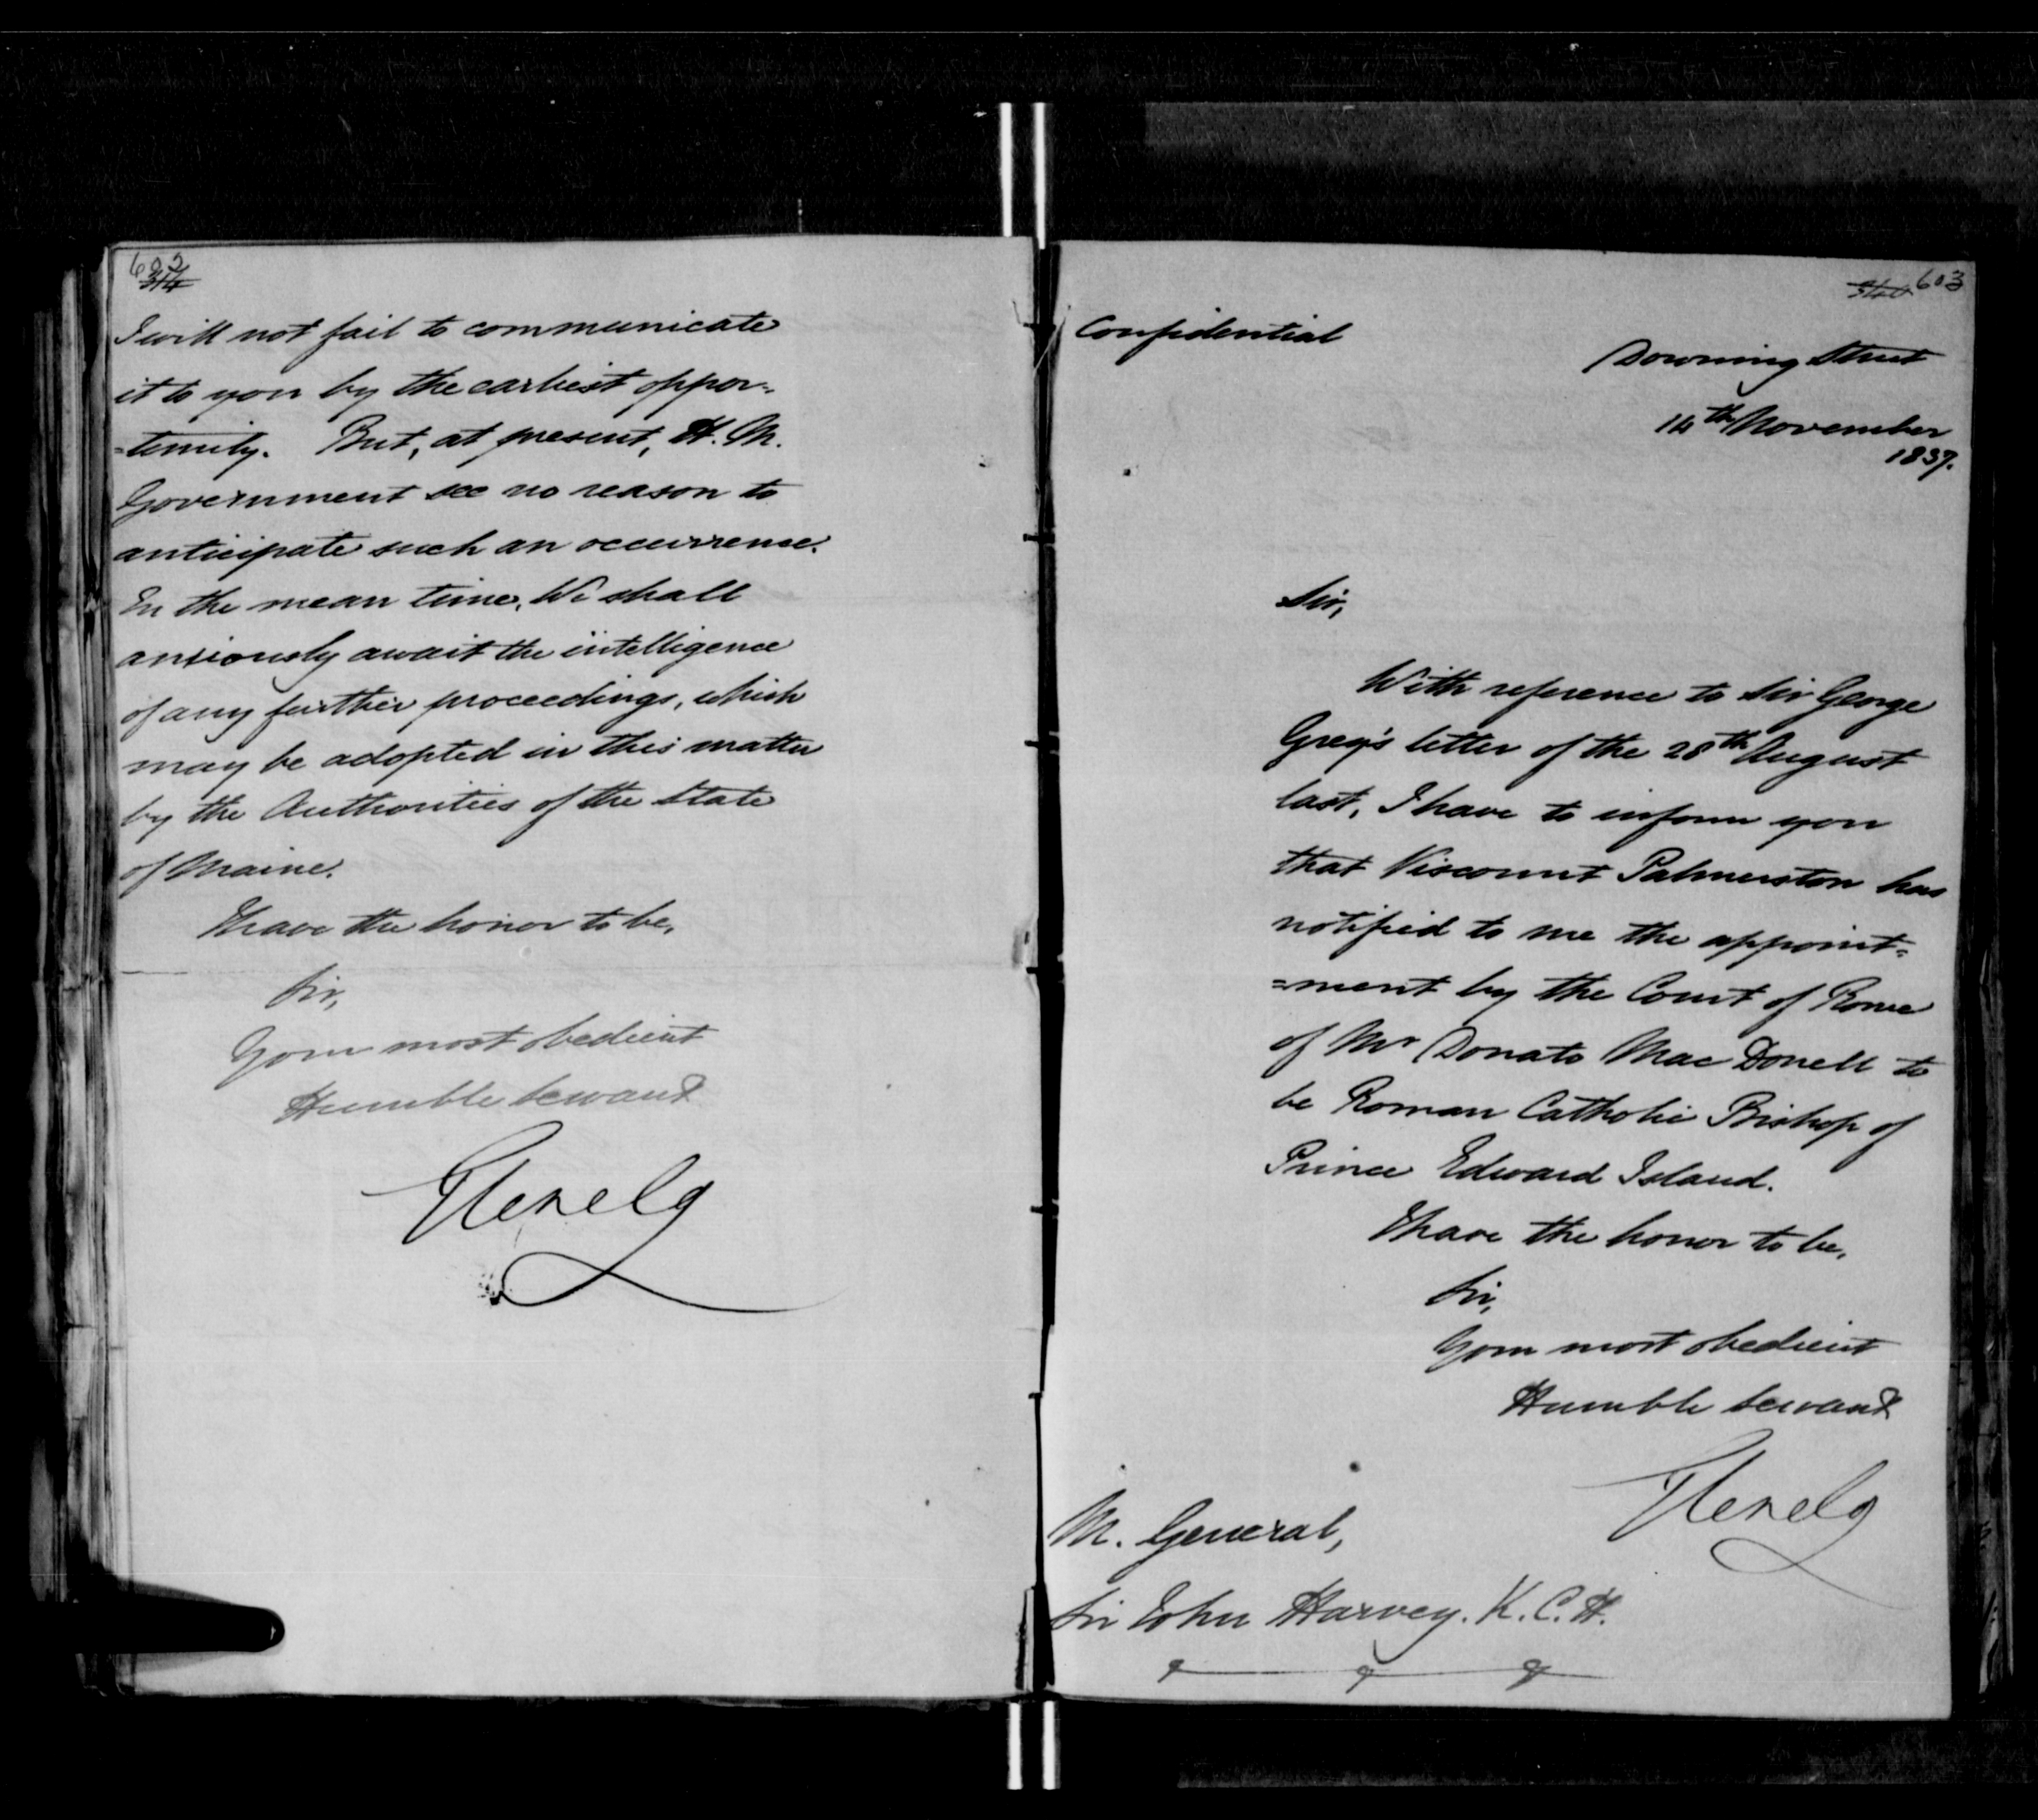 602
314
I will not fail to communicate
it to you by the earliest oppor-
=tunity. But, at present, H. M.
Government see no reason to
anticipate such an occurrence.
In the mean time, We shall
anxiously await the intelligence
of any further proceedings, which
may be adopted in this matter
by the Authorities of the State
of Maine.
I have the honor to be,
Sir,
Your most obedient
Humble Servant
Glenelg
603
Confidential
Downing Street
14th November
1837.
Sir,
With reference to Sir George
Grey's letter of the 28th August
last, I have to inform you
that Viscount Palmerston has
notified to me the appoint=
=ment by the Court of Rome
of Mr Donato Mac Donell to
be Roman Catholic Bishop of
Prince Edward Island.
I have the honor to be,
Sir,
Your most obedient
Humble Servant
Glenelg
M. General,
Sir John Harvey. K. C. H.